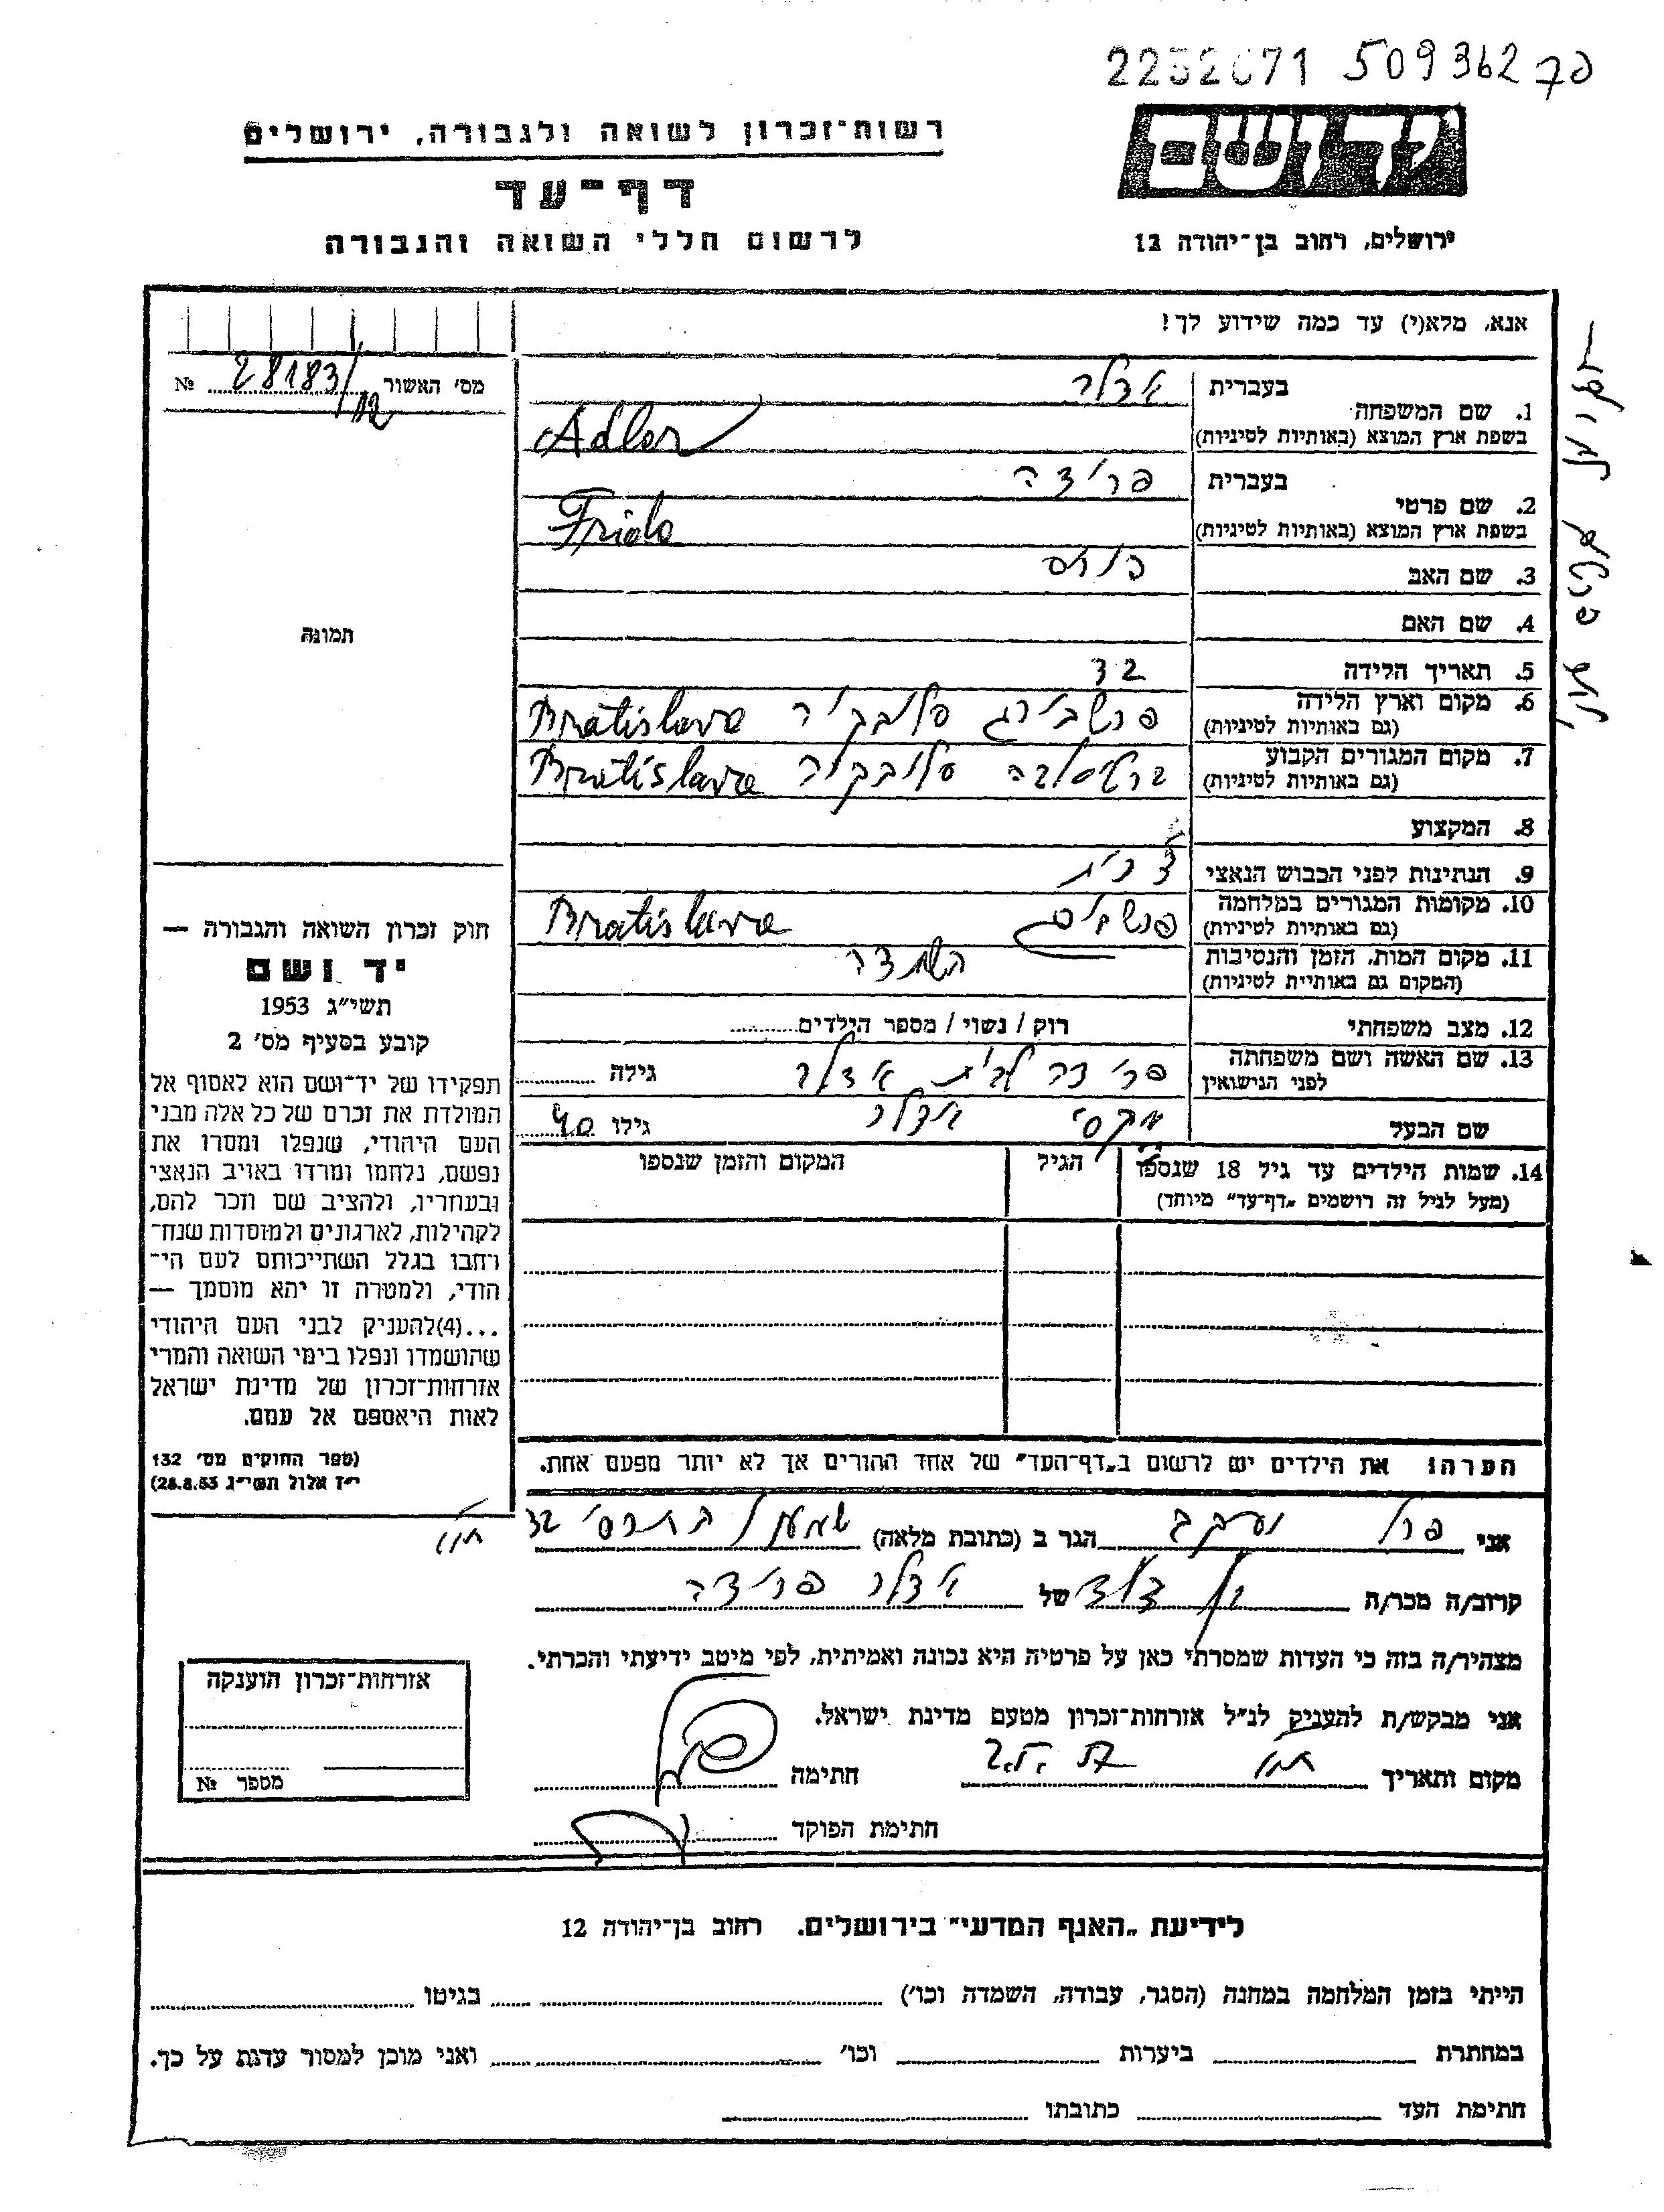 509362 פק
רשות־זכרון לשואה ולגבורה, ירושלים
דף־עד
לרשום חללי השואה והגבורה
יד ושם
ירושלים, רחוב בן־יהודה 12
אנא, מלא(י) עד כמה שידוע לך!
מס׳ האשור 28183/12 №
תמונה
1. שם המשפחה
בעברית אדלר
בשפת ארץ המוצא (באותיות לטיניות) Adler
2. שם פרטי
בעברית פרידה
בשפת ארץ המוצא (באותיות לטיניות) Frida
3. שם האב
4. שם האם
5. תאריך הלידה 32
6. מקום וארץ הלידה
(גם באותיות לטיניות) פרשבורג סלובקיה Bratislava
7. מקום המגורים הקבוע
(גם באותיות לטיניות) ברטיסלבה סלובקיה Bratislava
8. המקצוע
9. הנתינות לפני הכבוש הנאצי
10. מקומות המגורים במלחמה
(גם באותיות לטיניות) Bratislava
11. מקום המות, הזמן והנסיבות
(המקום גם באותיית לטיניות)
12. מצב משפחתי רוק / נשוי / מספר הילדים
13. שם האשה ושם משפחתה
לפני הנישואין פרידה לבית אדלר גילה
שם הבעל מקסי אדלר גילו 40
14. שמות הילדים עד גיל 18 שנספו הגיל המקום והזמן שנספו
(מעל לגיל זה רושמים „דף־עד" מיוחד)
הערה! את הילדים יש לרשום ב„דף־העד" של אחד ההורים אך לא יותר מפעם אחת.
חוק זכרון השואה והגבורה —
יד ושם
תשי״ג 1953
קובע בסעיף מס׳ 2
תפקידו של יד־ושם הוא לאסוף אל
המולדת את זכרם של כל אלה מבני
העם היהודי, שנפלו ומסרו את
נפשם, נלחמו ומרדו באויב הנאצי
ובעוזריו, ולהציב שם וזכר להם,
לקהילות, לארגונים ולמוסדות שנח־
רבו בגלל השתייכותם לעם הי־
הודי, ולמטרה זו יהא מוסמך —
...(4)להעניק לבני העם היהודי
שהושמדו ונפלו בימי השואה והמרי
אזרחות־זכרון של מדינת ישראל
לאות היאספם אל עמם.
(ספר החוקים מס׳ 132
י״ז אלול תשי״ג 28.8.53)
אני פרל יעקב הגר ב (כתובת מלאה) שמעון התרסי 32
קרוב/ה מכר/ה בן דוד של אדלר פרידה
מצהיר/ה בזה כי העדות שמסרתי כאן על פרטיה היא נכונה ואמיתית, לפי מיטב ידיעתי והכרתי.
אני מבקש/ת להעניק לנ״ל אזרחות־זכרון מטעם מדינת ישראל.
מקום ותאריך חתימה
חתימת הפוקד
אזרחות־זכרון הוענקה
מספר №
לידיעת „האנף המדעי" בירושלים. רחוב בן־יהודה 12
הייתי בזמן המלחמה במחנה (הסגר, עבודה, השמדה וכו׳) בגיטו
במחתרת ביערות וכו׳ ואני מוכן למסור עדות על כך.
חתימת העד כתובתו